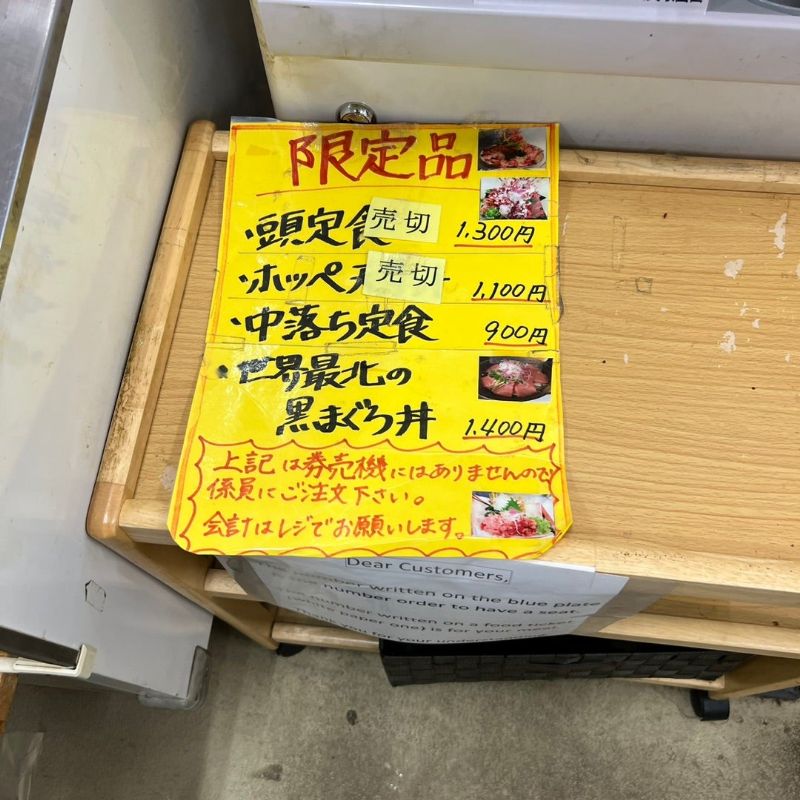 限定品
・頭定食 売切 1.300円
・ホッペ 売切 1,100円
・中落ち定食 900円
・世界最北の
黒まぐろ丼 1.400円
上記は券売機にはありませんので
係員にご注文下さい。
会計はレジでお願いします。
Dear Customers,
number written on the blue plate
number order to have a seat.
number written on a food ticket
paper one) is for your meal.
you for your